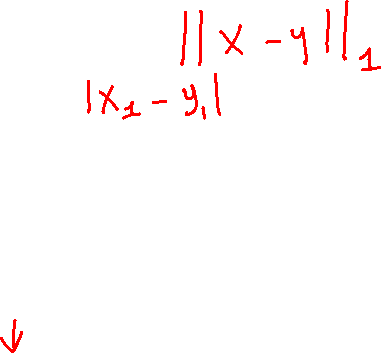 ||x - y||₁
|x₁ - y₁|
↓